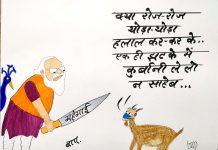 क्या रोज-रोज
थोड़ा-थोड़ा
हलाल कर-कर के..
एक ही झटके में
कुर्बानी ले लो
न साहेब...
महंगाई
बाप.